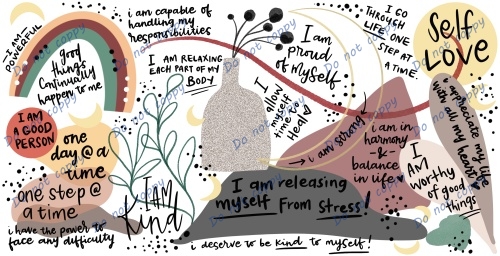 I AM
POWERFUL
good
things
continually
happen to me
i am capable of
handling my
responsibilities
I AM RELAXING
EACH PART OF MY
BODY
I am
proud
of myself
I GO
THROUGH
LIFE ONE
STEP AT
A TIME.
Self
LOVE
I AM
A GOOD
PERSON
one
day @ a
time
one step @
a time
i have the power to
face any difficulty
I AM
Kind
I
allow
myself
time to
Heal
i am strong
i am in
harmony
&
balance
in life
i appreciate my life
with all my heart
I
AM
worthy
of good
things
I am releasing
myself From Stress!
i deserve to be kind to myself!
Do not copy